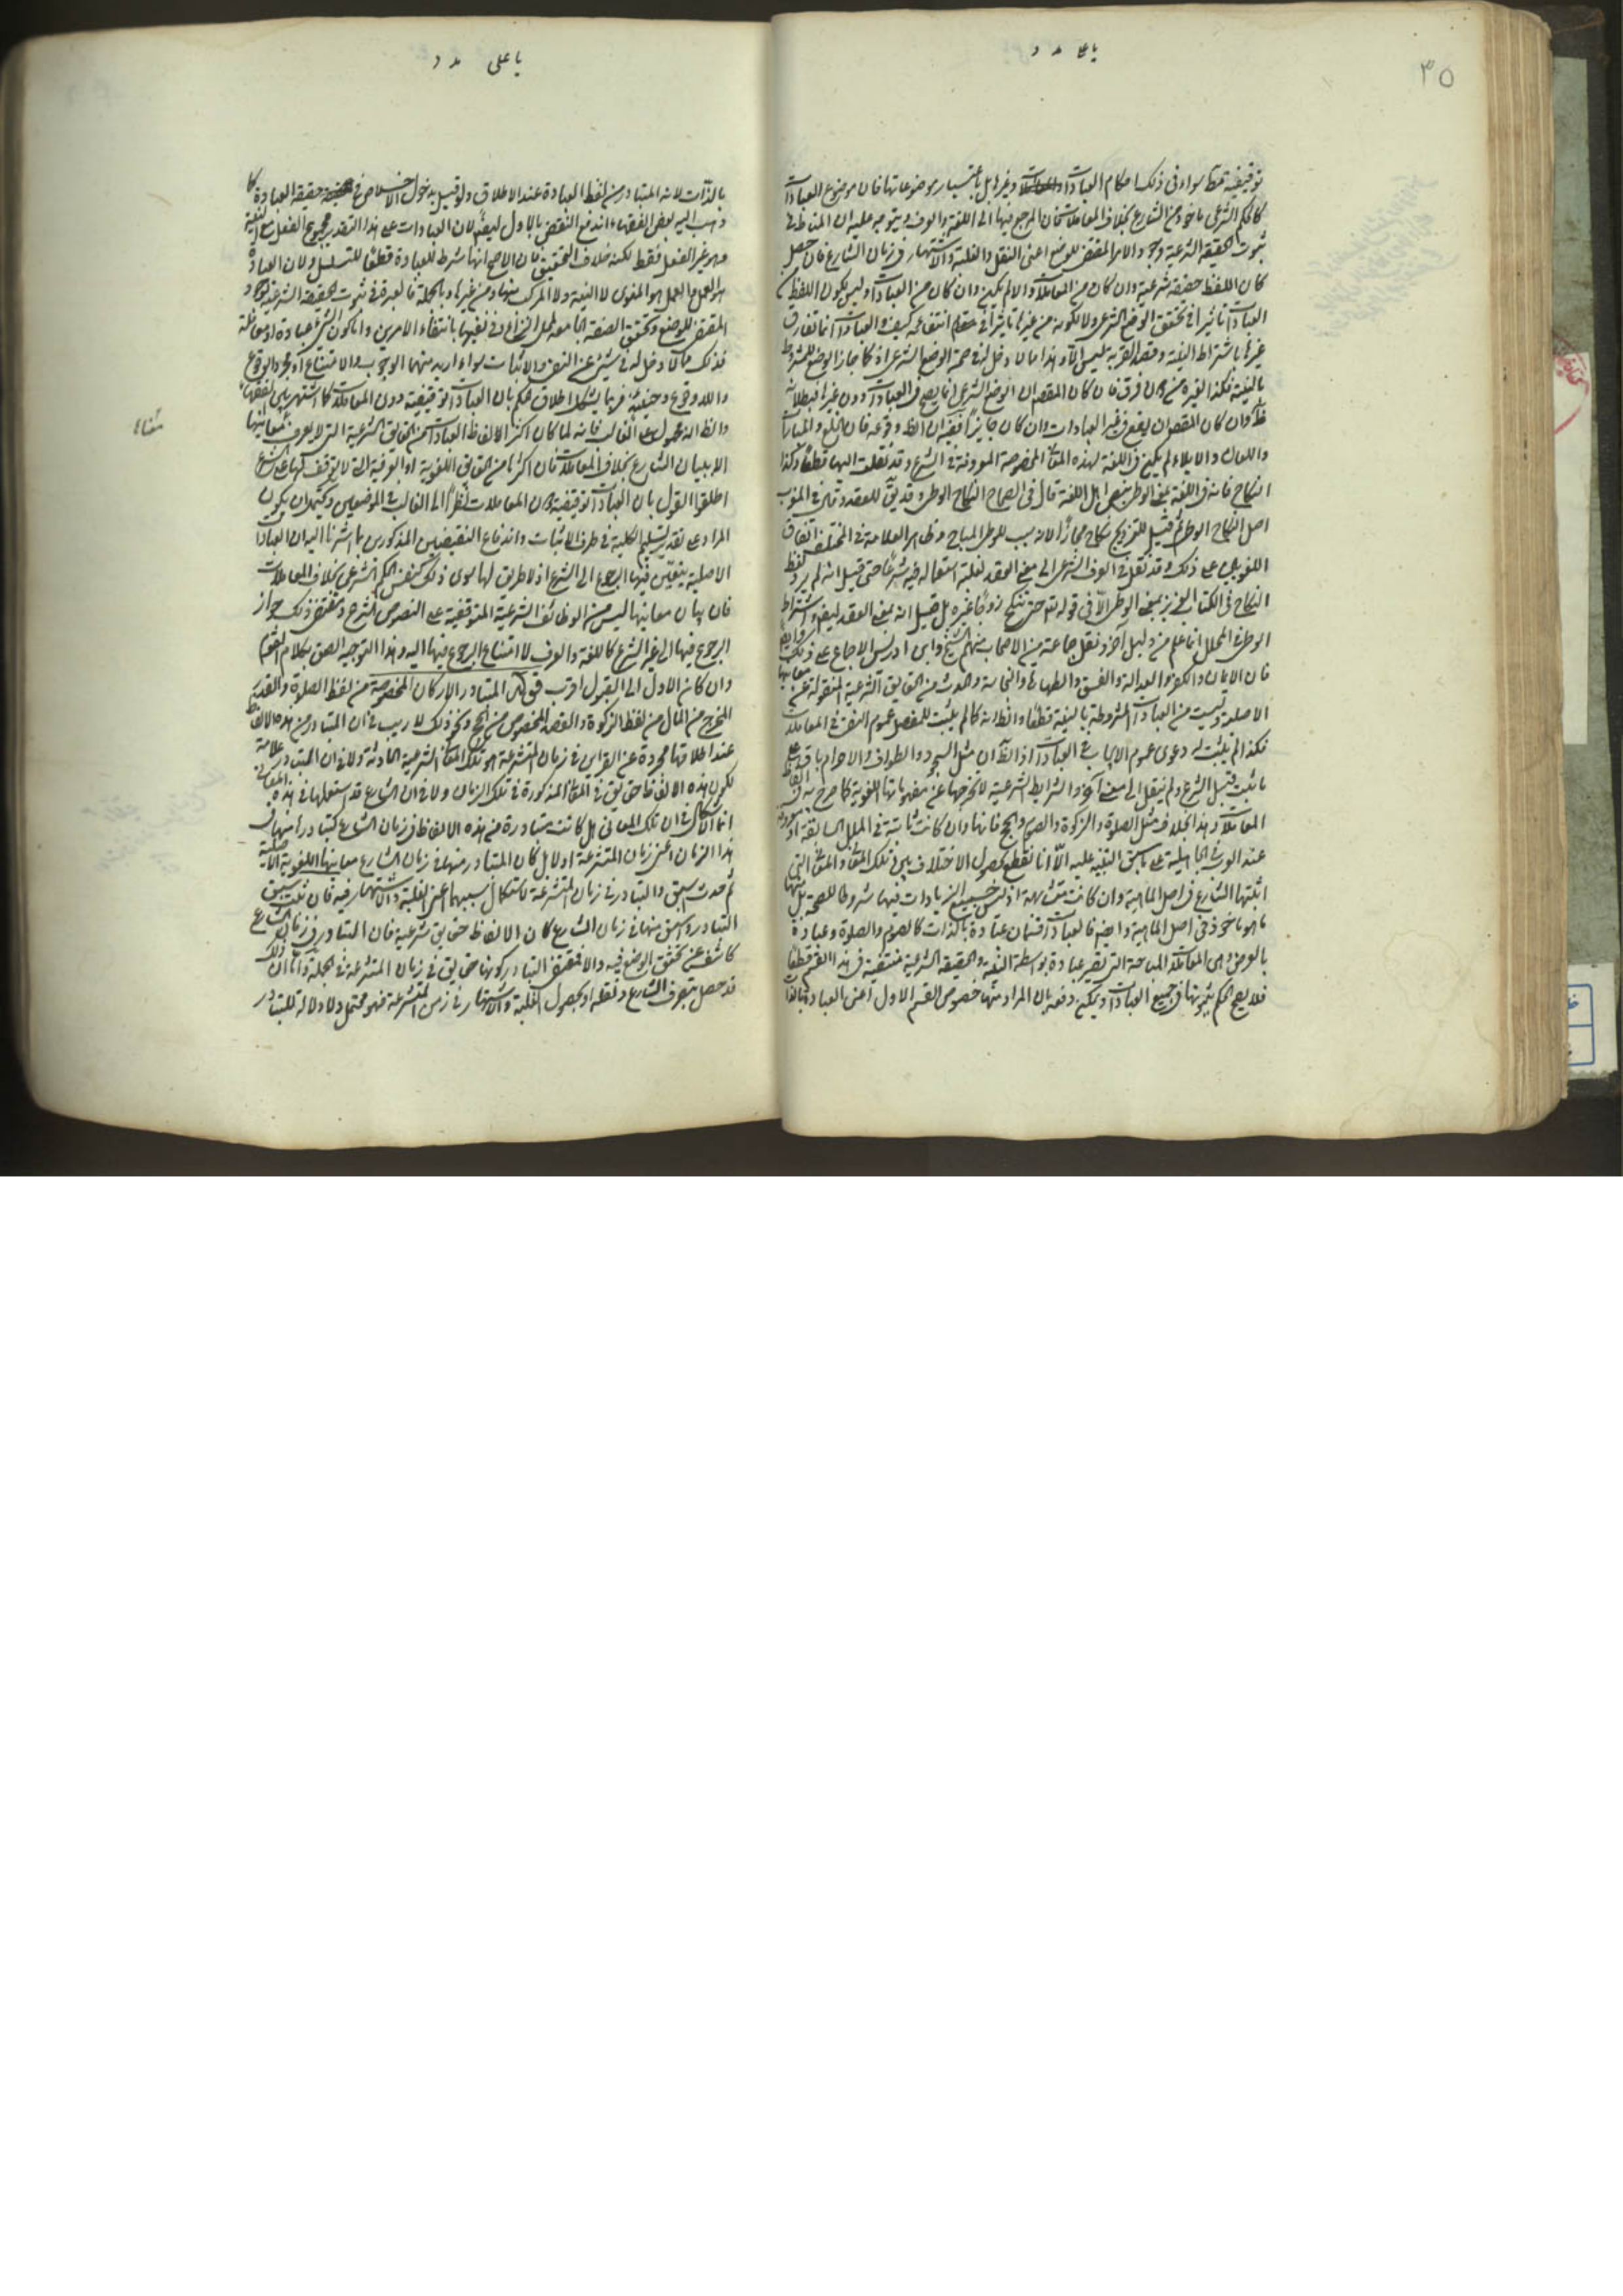 ٣٥
توقيفية قطعا سواء في ذلك احكام العبادات والمعاملات وغيرها بل باعتبار موضوعاتها فان موضوع العبادات
كالحكم الشرعي ماخوذ من الشارع بخلاف المعاملات فان المرجع فيها الى اللغة والعرف ويتوجه عليه ان المناط في
ثبوت الحقيقة الشرعية وجود الامر المقتضي للوضع اعنى النقل والغلبة والاشتهار في زمان الشارع فان حصل
كان اللفظ حقيقة شرعية وان كان من المعاملات والا لم يكن وان كان من العبادات وليس لكون اللفظ من
العبادات تاثيرا في تحقق الوضع الشرعي ولا لكونه من غيرها تاثيرا في انتفائه كيف والعبادات انما تفارق
غيرها باشتراط النية وقصد القربة ليس الا وهذا مما لا دخل له في صحة الوضع الشرعي اذ كما جاز الوضع للمشروط
بالنية فكذا لغيره من دون فرق فان كان المقصود ان الوضع الشرعي انما يصح في العبادات دون غيرها فبطلانه
ظاهر وان كان المقصود ان لم يقع في غير العبادات وان كان جايزا ففيه ان الظ وقوعه فان الخلع والمباراة
واللعان والايلاء لم يكن في اللغة لهذه المعاني المخصوصة المعروفة في الشرع وقد نقلت اليها قطعا وكذا
النكاح فانه في اللغة بمعنى الوطي بنص اهل اللغة قال في الصحاح النكاح الوطي وقد يق للعقد وقال في المغرب
اصل النكاح الوطي ثم قيل للتزويج نكاح مجازا لانه سبب للوطي المباح وظاهر العلامة في المختلف اتفاق
اللغويين على ذلك وقد نقل في العرف الشرعي الى معنى العقد لغلبة استعماله فيه شرعا حتى قيل انه لم يرد لفظ
النكاح في الكتاب العزيز بمعنى الوطي الا في قوله تع حتى تنكح زوجا غيره بل قيل انه بمعنى العقد ايضا واشتراط
الوطي في المحلل انما علم من دليل آخر ونقل جماعة من الاصحاب منهم الشيخ وابن ادريس الاجماع على ذلك وايضا
فان الايمان والكفر والعدالة والفسق والطهارة والنجاسة والحدث من الحقايق الشرعية المنقولة عن معانيها
الاصلية وليست من العبادات المشروطة بالنية قطعا والظ انه كما لم يثبت للمفصل عموم النفي في المعاملات
فكذا لم يثبت له دعوى عموم الايجاب في العبادات اذ الظ ان مثل السجود والطواف والاحرام باق على
ما ثبت قبل الشرع ولم ينقل الى معنى آخر والشرايط الشرعية لا تخرجها عن مفهوماتها اللغوية كما صرح به في الفاظ
المعاملات وهذا بخلاف مثل الصلوة والزكوة والصوم والحج فانها وان كانت ثابتة في الملل السابقة او معروفة
عند العرب في الجاهلية على ما سبق التنبيه عليه الا انا نقطع بحصول الاختلاف بين تلك المعاني والمعاني التي
اثبتها الشارع في اصل الماهية وان كانت متشابهة اذ ليس جميع الزيادات فيها شروطا للصحة بل منها
ما هو ماخوذ في اصل الماهية وايضا فالعبادات قسمان عبادة بالذات كالصوم والصلوة وعبادة
بالعرض وهي المعاملات المباحة التي تصير عبادة بواسطة النية والحقيقة الشرعية منتفية في هذا القسم قطعا
فلا يصح الحكم بثبوتها في جميع العبادات ويمكن دفعه بان المراد منها خصوص القسم الاول اعنى العبادة بالذات
يا على مدد
بالذات لانه المتبادر من لفظ العبادة عند الاطلاق ولو قيل بدخول الاخلاص في حقيقة العبادة كما
ذهب اليه بعض الفقهاء اندفع النقض بالاول ايضا لان العبادات على هذا التقدير مجموع الفعل مع النية
وهو غير الفعل فقط لكنه خلاف التحقيق لان الاصح انها شرط للعبادة قطعا للتسلسل ولان العبادة
هو العمل والعمل هو المنوى لا النية ولا المركب منها ومن غيرها وبالجملة فالعبرة في ثبوت الحقيقة الشرعية بوجود
المقتضي للوضع وتحقق الصفة الجامعة لمحل النزاع وفي نفيها بانتفاء الامرين واما كون الشئ عبادة او معاملة
فذلك مما لا دخل له في شئ من النفي والاثبات سواء اريد منهما الوجوب والامتناع او مجرد الوقوع
واللا وقوع وحينئذ فربما يشكل اطلاق حكم بان العبادات توقيفية دون المعاملات كما اشتهر بين الفقهاء
والظ انه محمول على الغالب فانه لما كان اكثر الالفاظ العبادات من الحقايق الشرعية التي لا يعرف معانيها
الا ببيان الشارع بخلاف المعاملات فان اكثرها من الحقايق اللغوية او العرفية التي لا يتوقف فهمها على الشرع
اطلقوا القول بان العبادات توقيفية دون المعاملات نظرا الى الغالب في الموضعين ويحتمل ان يكون
المراد على تقدير تسليم الكلية في طرف الاثبات واندفاع النقيضين المذكورين بما اشرنا اليه ان العبادات
الاصلية يتعين فيها الرجوع الى الشرع اذ لا طريق لها سوى ذلك كنفس الحكم الشرعي بخلاف المعاملات
فان بيان معانيها ليس من الوظائف الشرعية الموقفية على النصوص الشرع ومقتضى ذلك جواز
الرجوع فيها الى غير الشرع كاللغة والعرف لا امتناع الرجوع فيها اليه وهذا التوجيه الصق بكلام القوم
وان كان الاول الى القبول اقرب قوله المتبادر الاركان المخصوصة من لفظ الصلوة والقدر
المخرج من المال من لفظ الزكوة والقصد المخصوص من الحج ونحو ذلك لا ريب في ان المتبادر من هذه الالفاظ
عند اطلاقها مجردة عن القراين في زمان المتشرعة هو تلك المعاني الشرعية الحادثة ولا في ان التبادر علامة
لكون هذه الالفاظ حقايق في المعاني المذكورة في تلك الزمان ولا في ان الشارع قد استعملها في هذه المعاني
انما الاشكال في ان تلك المعاني هل كانت متبادرة من هذه الالفاظ في زمان الشارع كتبادرها منها في
هذا الزمان اعنى زمان المتشرعة او لا بل كان المتبادر منها في زمان الشارع معانيها اللغوية الاصلية
ثم حدث السبق والتبادر في زمان المتشرعة لاستكمال سببهما اعنى الغلبة والاشتهار فيه فان ثبت سبق
التبادر وسبق منها في زمان الشارع كان الالفاظ حقايق شرعية فان التبادر في زمان الشارع
كاشف عن تحقق الوضع فيه والا فمقتضى التبادر كونها حقايق في زمان المتشرعة في الجملة واما ان ذلك
قد حصل بتصرف الشارع ونقله او بحصول الغلبة والاشتهار في زمن المتشرعة فهو محتمل ولا دلالة للتبادر